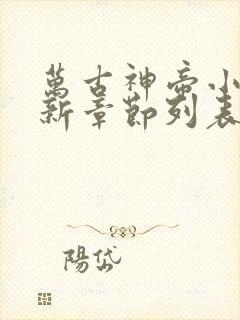 萬古神帝小
新章節列表
陽岱